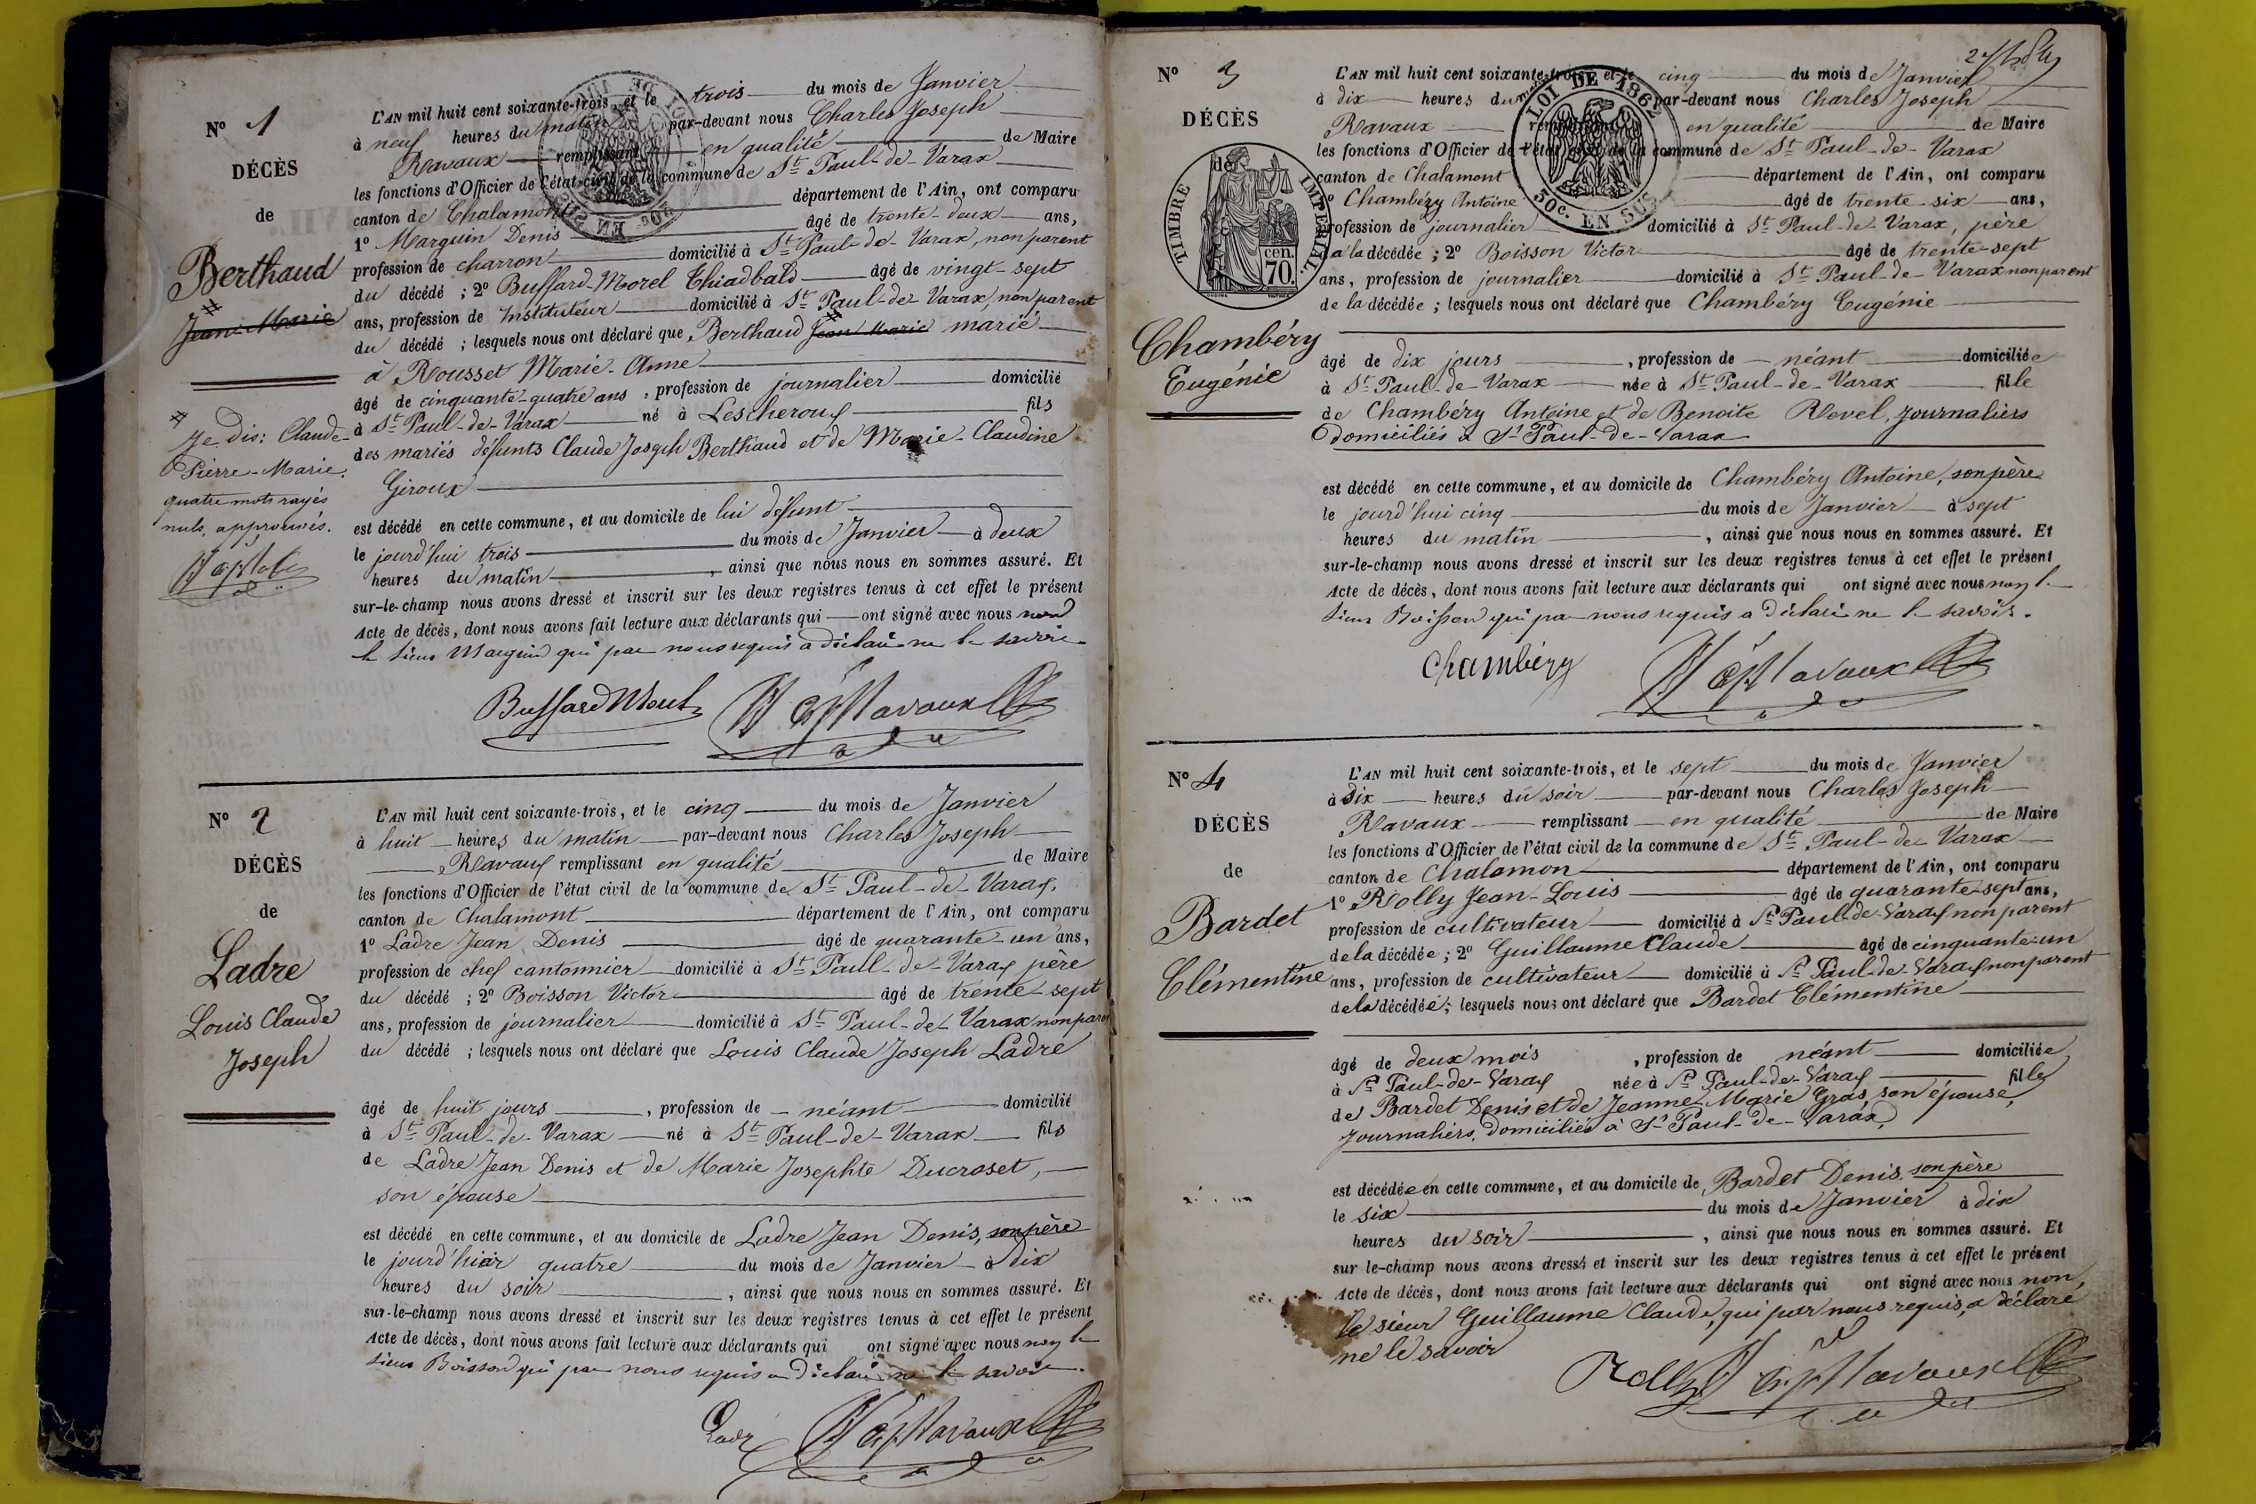 N° 1
DÉCÈS
de
Berthaud
#
Jean-Marie
# Je dis: Claude-
Pierre-Marie.
quatre mots rayés
nuls, approuvés.
L'AN mil huit cent soixante-trois, et le trois du mois de Janvier
à neuf heures du matin par-devant nous Charles Joseph
Ravaux remplissant en qualité de Maire
les fonctions d'Officier de l'état civil de la commune de St Paul-de-Varax
canton de Chalamont département de l'Ain, ont comparu
1° Marguin Denis âgé de trente-deux ans,
profession de charron domicilié à St Paul-de-Varax, non parent
du décédé ; 2° Buffard-Morel Thiadbald âgé de vingt-sept
ans, profession de Instituteur domicilié à St Paul-de-Varax, non parent
du décédé ; lesquels nous ont déclaré que Berthaud # Jean Marie marié
à Rousset Marie-Anne
âgé de cinquante-quatre ans, profession de journalier domicilié
à St Paul-de-Varax né à Lescheroux fils
des mariés défunts Claude Joseph Berthaud et de Marie-Claudine
Giroux
est décédé en cette commune, et au domicile de lui défunt
le jourd'hui trois du mois de Janvier à deux
heures du matin, ainsi que nous nous en sommes assuré. Et
sur-le-champ nous avons dressé et inscrit sur les deux registres tenus à cet effet le présent
Acte de décès, dont nous avons fait lecture aux déclarants qui ont signé avec nous non
le sieur Marguin qui par nous requis a déclaré ne le savoir
Buffard Morel Ravaux
N° 2
DÉCÈS
de
Ladre
Louis Claude
Joseph
L'AN mil huit cent soixante-trois, et le cinq du mois de Janvier
à huit heures du matin par-devant nous Charles Joseph
Ravaux remplissant en qualité de Maire
les fonctions d'Officier de l'état civil de la commune de St Paul-de-Varax,
canton de Chalamont département de l'Ain, ont comparu
1° Ladre Jean Denis âgé de quarante-un ans,
profession de chef cantonnier domicilié à St Paul-de-Varax père
du décédé ; 2° Boisson Victor âgé de trente-sept
ans, profession de journalier domicilié à St Paul-de-Varax non parent
du décédé ; lesquels nous ont déclaré que Louis Claude Joseph Ladre
âgé de huit jours, profession de néant domicilié
à St Paul-de-Varax né à St Paul-de-Varax fils
de Ladre Jean Denis et de Marie Josephte Ducroset,
son épouse
est décédé en cette commune, et au domicile de Ladre Jean Denis, son père
le jourd'hier quatre du mois de Janvier à dix
heures du soir, ainsi que nous nous en sommes assuré. Et
sur-le-champ nous avons dressé et inscrit sur les deux registres tenus à cet effet le présent
Acte de décès, dont nous avons fait lecture aux déclarants qui ont signé avec nous non le
sieur Boisson qui par nous requis a déclaré ne le savoir.
Ladre Ravaux
N° 3
DÉCÈS
de
TIMBRE IMPERIAL
cen. 70.
Chambéry
Eugénie
LOI DE 1862
50c. EN SUS
L'AN mil huit cent soixante-trois, et le cinq du mois de Janvier
à dix heures du matin par-devant nous Charles Joseph
Ravaux remplissant en qualité de Maire
les fonctions d'Officier de l'état civil de la commune de St Paul-de-Varax
canton de Chalamont département de l'Ain, ont comparu
1° Chambéry Antoine âgé de trente-six ans,
profession de journalier domicilié à St Paul-de-Varax, père
de la décédée ; 2° Boisson Victor âgé de trente-sept
ans, profession de journalier domicilié à St Paul-de-Varax non parent
de la décédée ; lesquels nous ont déclaré que Chambéry Eugénie
âgé de dix jours, profession de néant domiciliée
à St Paul-de-Varax née à St Paul-de-Varax fille
de Chambéry Antoine et de Benoite Revel, journaliers
domiciliés à St Paul-de-Varax
est décédé en cette commune, et au domicile de Chambéry Antoine, son père
le jourd'hui cinq du mois de Janvier à sept
heures du matin, ainsi que nous nous en sommes assuré. Et
sur-le-champ nous avons dressé et inscrit sur les deux registres tenus à cet effet le présent
Acte de décès, dont nous avons fait lecture aux déclarants qui ont signé avec nous non le
sieur Boisson qui par nous requis a déclaré ne le savoir.
Chambéry Ravaux
N° 4
DÉCÈS
de
Bardet
Clémentine
L'AN mil huit cent soixante-trois, et le sept du mois de Janvier
à dix heures du soir par-devant nous Charles Joseph
Ravaux remplissant en qualité de Maire
les fonctions d'Officier de l'état civil de la commune de St Paul-de-Varax
canton de Chalamon département de l'Ain, ont comparu
1° Rolly Jean-Louis âgé de quarante-sept ans,
profession de cultivateur domicilié à St Paul-de-Varax non parent
de la décédée ; 2° Guillaume Claude âgé de cinquante-un
ans, profession de cultivateur domicilié à St Paul-de-Varax non parent
de la décédée ; lesquels nous ont déclaré que Bardet Clémentine
âgé de deux mois, profession de néant domiciliée
à St Paul-de-Varax née à St Paul-de-Varax fille
de Bardet Denis et de Jeanne Marie Gras, son épouse,
journaliers, domiciliés à St Paul-de-Varax,
est décédée en cette commune, et au domicile de Bardet Denis, son père
le six du mois de Janvier à dix
heures du soir, ainsi que nous nous en sommes assuré. Et
sur le-champ nous avons dressé et inscrit sur les deux registres tenus à cet effet le présent
Acte de décès, dont nous avons fait lecture aux déclarants qui ont signé avec nous non,
le sieur Guillaume Claude, qui par nous requis, a déclaré
ne le savoir
Rolly Ravaux